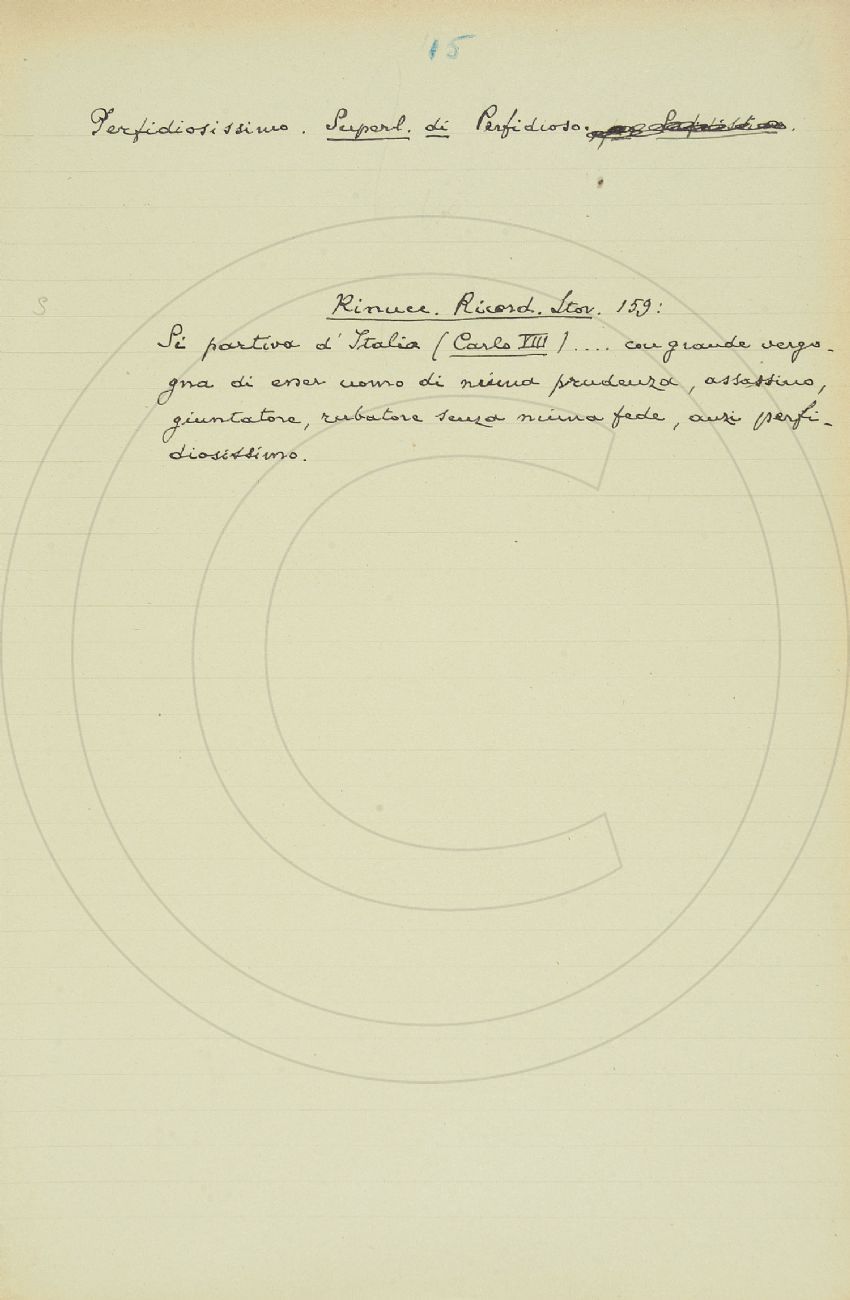 15
Perfidiosissimo. Superl. di Perfidioso.
S
Rinucc. Ricord. Stor. 159:
Si partiva d'Italia (Carlo VIII) .... con grande vergo-
gna di esser uomo di niuna prudenza, assassino,
giuntatore, rubatore senza niuna fede, anzi perfi-
diosissimo.